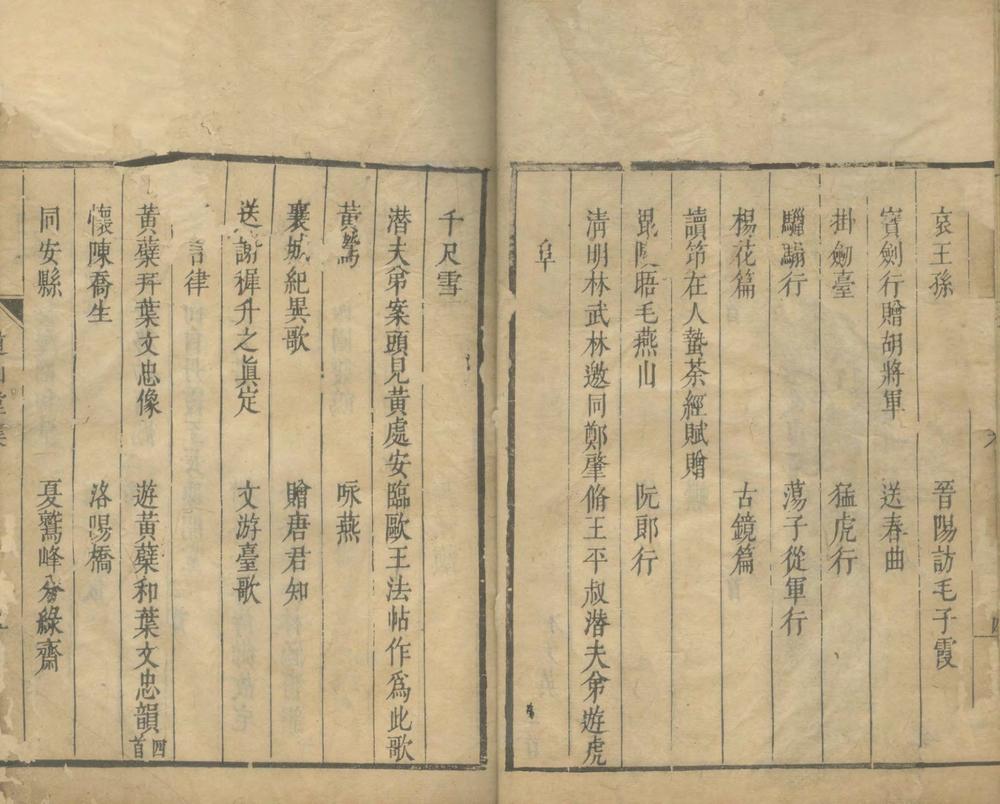 哀王孫 晉陽訪毛子霞
寶劍行贈胡將軍 送春曲
掛劒臺 猛虎行
驪駒行 蕩子從軍行
楊花篇 古鏡篇
讀笻在人蟄茶經賦贈
晤毛燕山 阮郎行
清明林武林邀同鄭肇脩王平叔潜夫弟遊虎
阜
千尺雪
潜夫弟案頭見黃處安臨歐王法帖作爲此歌
黃鶯 咏燕
襄城紀異歌 贈唐君知
送謝穉升之眞定 文游臺歌
言律
黃蘗拜葉文忠像 遊黃蘗和葉文忠韻四首
懷陳喬生 洛陽橋
同安縣 夏鷟峰分綠齋